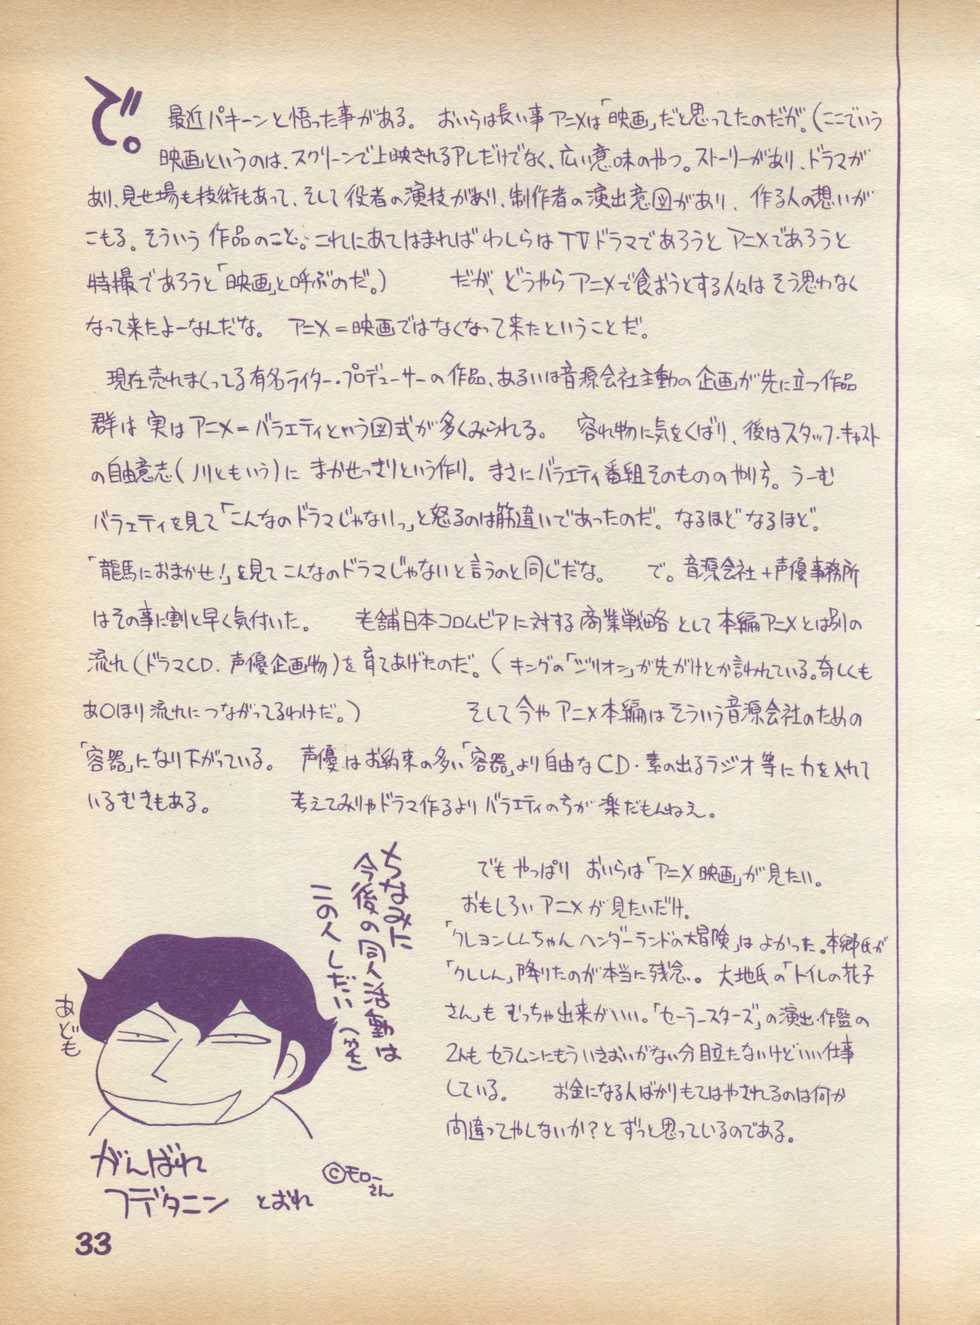 で。 最近パキーンと悟った事がある。 おいらは長い事アニメは「映画」だと思ってたのだが。(ここでいう
映画というのは、スクリーンで上映されるアレだけでなく、広い意味のやつ。ストーリーがあり、ドラマが
あり、見せ場も技術もあって、そして役者の演技があり、制作者の演出意図があり、作る人の想いが
こもる。そういう作品のこと。これにあてはまればわしらはTVドラマであろうとアニメであろうと
特撮であろうと「映画」と呼ぶのだ。) だが、どうやらアニメで食おうとする人々はそう思わなく
なって来たよーなんだな。 アニメ=映画ではなくなって来たということだ。
現在売れまくってる有名ライター・プロデューサーの作品、あるいは音源会社主動の企画が先に立つ作品
群は実はアニメ=バラエティという図式が多くみられる。 容れ物に気をくばり、後はスタッフ・キャスト
の自由意志(川ともいう)にまかせっきりという作り。まさにバラエティ番組そのもののやり方。うーむ
バラエティを見て「こんなのドラマじゃないっ」と怒るのは筋違いであったのだ。なるほどなるほど。
「龍馬におまかせ!」を見てこんなのドラマじゃないと言うのと同じだな。 で。音源会社+声優事務所
はその事に割と早く気付いた。 老舗日本コロムビアに対する商業戦略として本編アニメとは別の
流れ(ドラマCD、声優企画物)を育てあげたのだ。(キングの「ジリオン」が先がけとか言われている。奇しくも
あ○ほり流れにつながってるわけだ。) そして今やアニメ本編はそういう音源会社のための
「容器」になり下がっている。 声優はお約束の多い「容器」より自由なCD・素の出るラジオ等に力を入れて
いるむきもある。 考えてみりゃドラマ作るよりバラエティの方が楽だもんねえ。
でもやっぱりおいらは「アニメ映画」が見たい。
おもしろいアニメが見たいだけ。
「クレヨンしんちゃんヘンダーランドの大冒険」はよかった。本郷氏が
「クレしん」降りたのが本当に残念。 大地氏の「トイレの花子
さん」もむっちゃ出来がいい。「セーラースターズ」の演出・作監の
2人もセラムンにもういきおいがない分目立たないけどいい仕事
している。 お金になる人ばかりもてはやされるのは何か
間違ってやしないか?とずっと思っているのである。
ちなみに
今後の同人活動は
この人しだい(笑)
あども
がんばれ
フデタニン とおれ
©モローさん
33